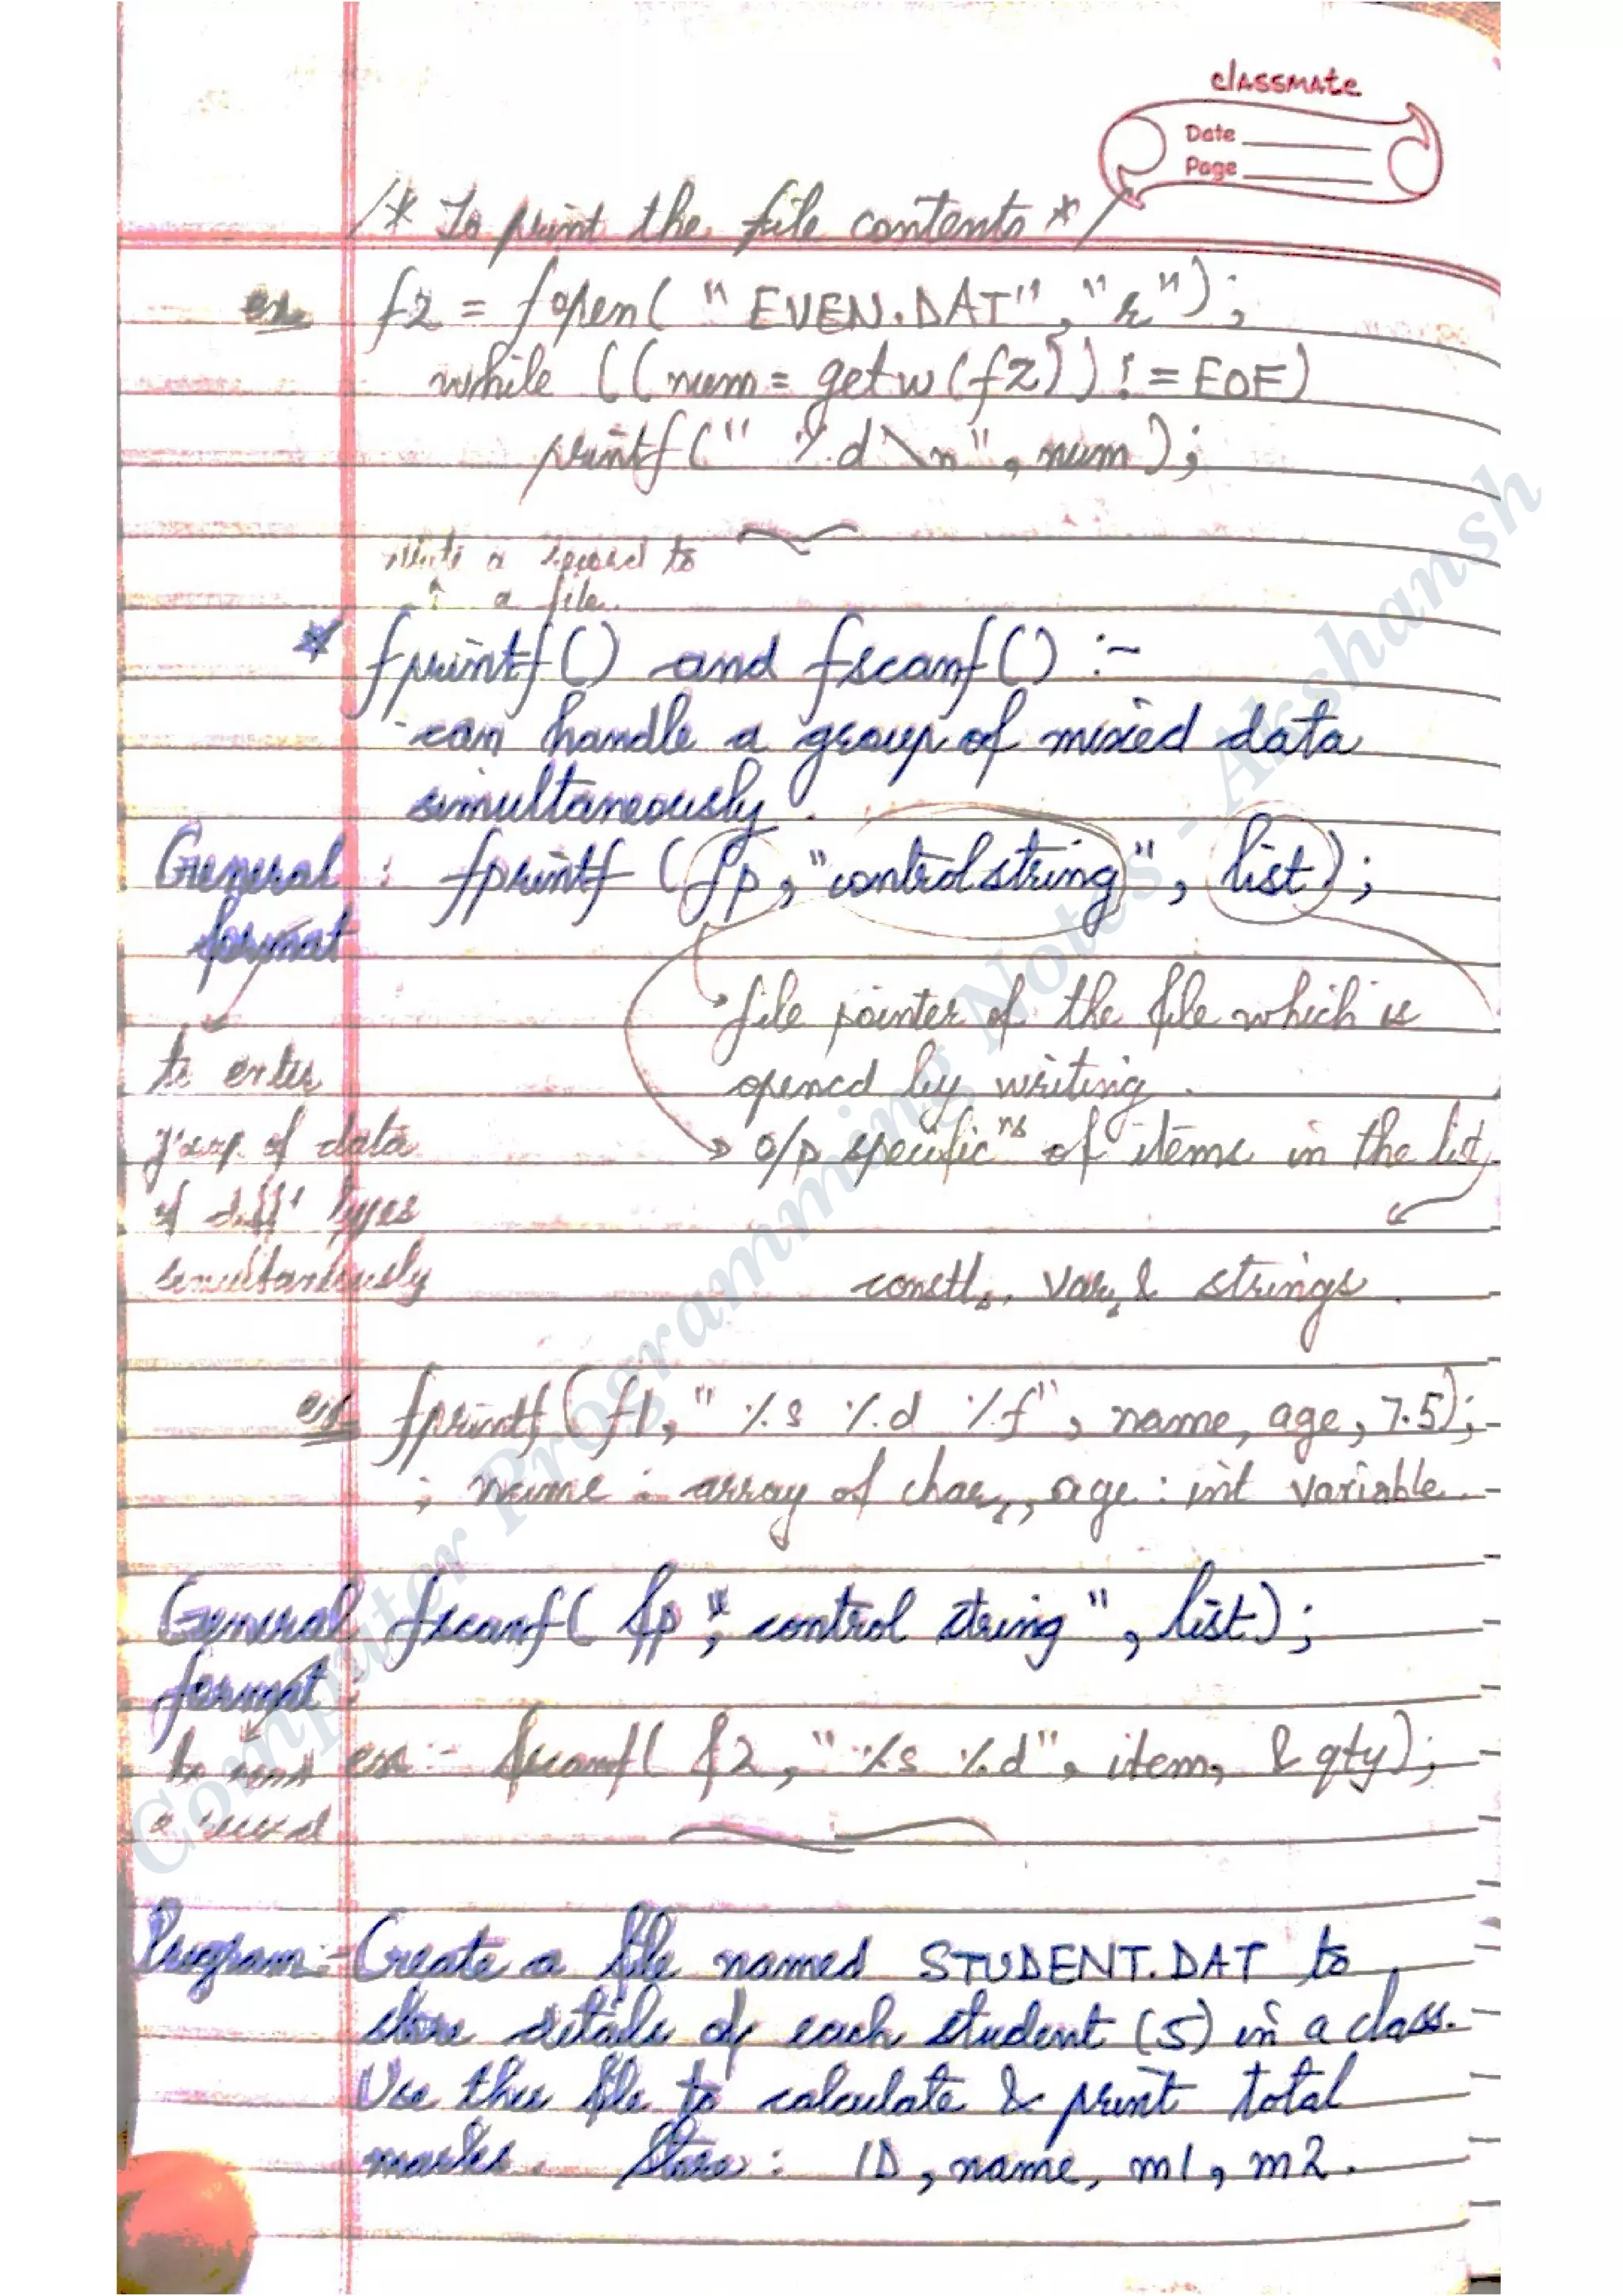 classmate
Date
Page
/* To print the file contents */
ex f2 = fopen( "EVEN.DAT", "r");
while ((num = getw(f2)) != EOF)
printf(" %d\n", num);
write a record to
a file.
* fprintf() and fscanf() :-
-can handle a group of mixed data
simultaneously.
General : fprintf (fp, "control string", list);
format
file pointer of the file which is
to enter
opened by writing.
group of data
o/p specificns of items in the list
of diff types
simultaneously
constt, var, & strings.
ex fprintf( f1, " %s %d %f", name, age, 7.5);
; name : array of char, age : int variable.
General fscanf( fp, "control string", list);
format
ex :- fscanf( f2, " %s %d", item, &qty);
to read
a record
Program - Create a file named STUDENT.DAT to
store details of each student (5) in a class.
Use this file to calculate & print total
marks. Store : ID, name, m1, m2.
Computer Programming Notes - Akshansh